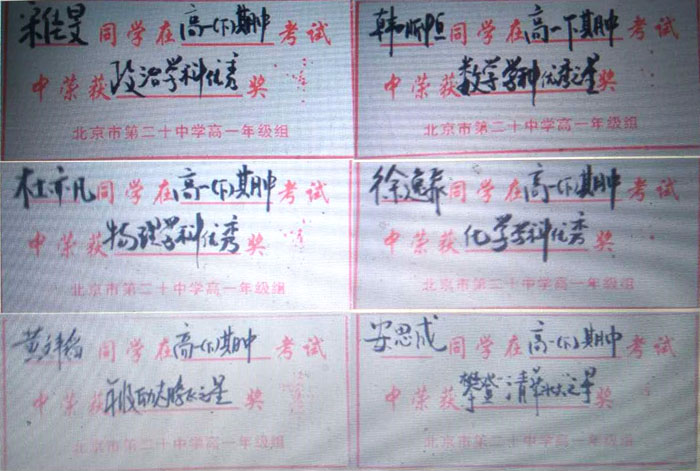 宋佳旻同学在高一(下)期中考试
中荣获政治学科优秀奖
北京市第二十中学高一年级组
韩昕恒同学在高一下期中考试
中荣获数学学科优秀之星奖
北京市第二十中学高一年级组
杜亦凡同学在高一(下)期中考试
中荣获物理学科优秀奖
北京市第二十中学高一年级组
徐逸 同学在高一(下)期中考试
中荣获化学学科优秀奖
北京市第二十中学高一年级组
黄 同学在高一(下)期中考试
中荣获年级 之星奖
北京市第二十中学高一年级组
安思成同学在高一(下)期中考试
中荣获攀登清华 之星奖
北京市第二十中学高一年级组